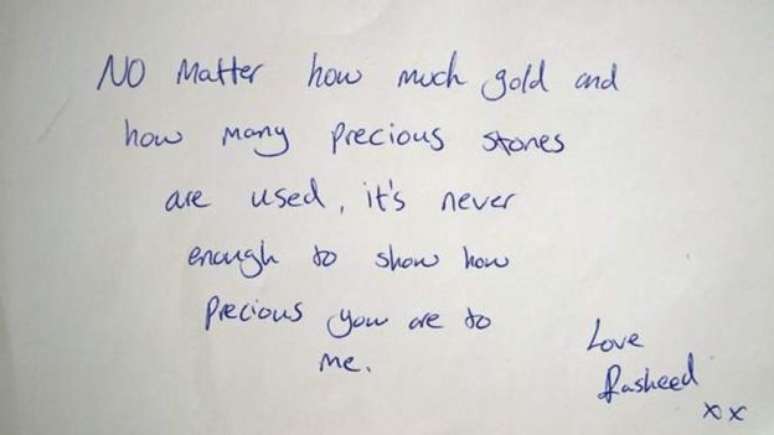 NO Matter how much gold and
how many precious stones
are used, it's never
enough to show how
precious you are to
me.
Love
Rasheed
xx